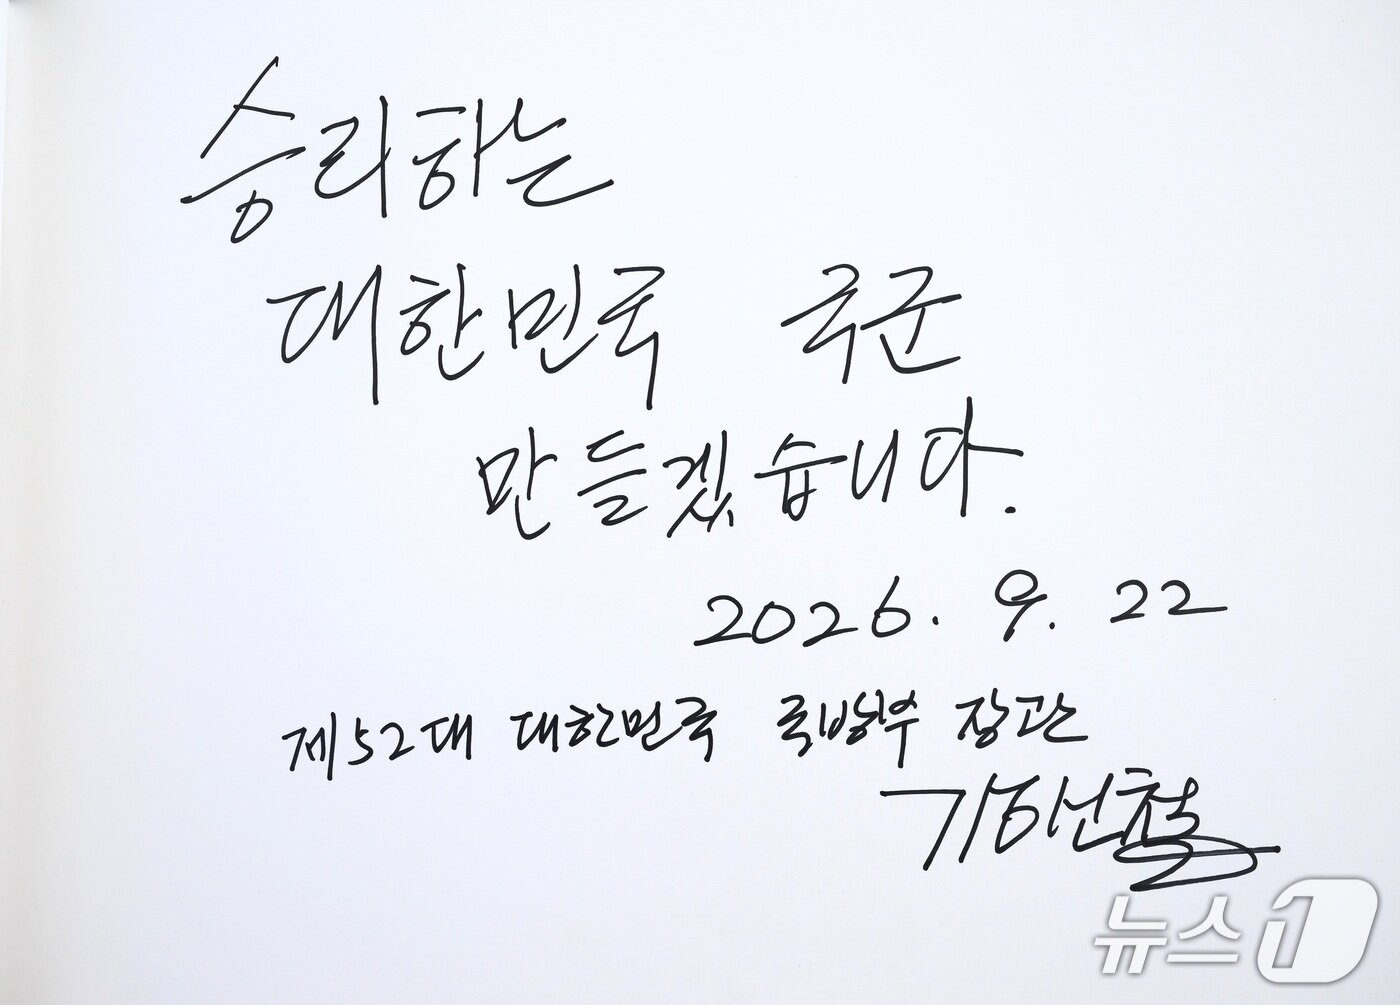 승리하는
대한민국 국군
만들겠습니다.
2026. 9. 22
제52대 대한민국 국방부 장관
뉴스1